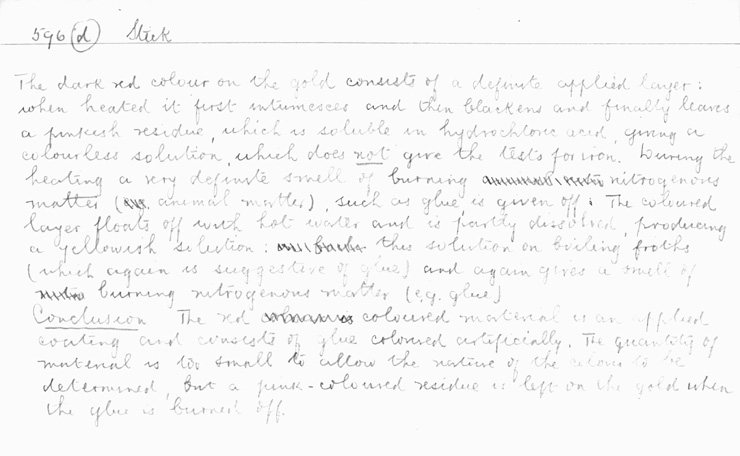 596 (d) Stick
The dark red colour on the gold consists of a definite applied layer:
when heated it first intumesces and then blackens and finally leaves
a pinkish residue, which is soluble in hydrochloric acid, giving a
colourless solution, which does not give the tests for iron. During the
heating a very definite smell of burning nitrogenous
matter (animal matter), such as glue, is given off. The coloured
layer floats off with hot water and is partly dissolved, producing
a yellowish solution: this solution on boiling froths
(which again is suggestive of glue) and again gives a smell of
burning nitrogenous matter (e.g. glue)
Conclusion The red coloured material is an applied
coating and consists of glue coloured artificially. The quantity of
material is too small to allow the nature of the colour to be
determined, but a pink-coloured residue is left on the gold when
the glue is burned off.